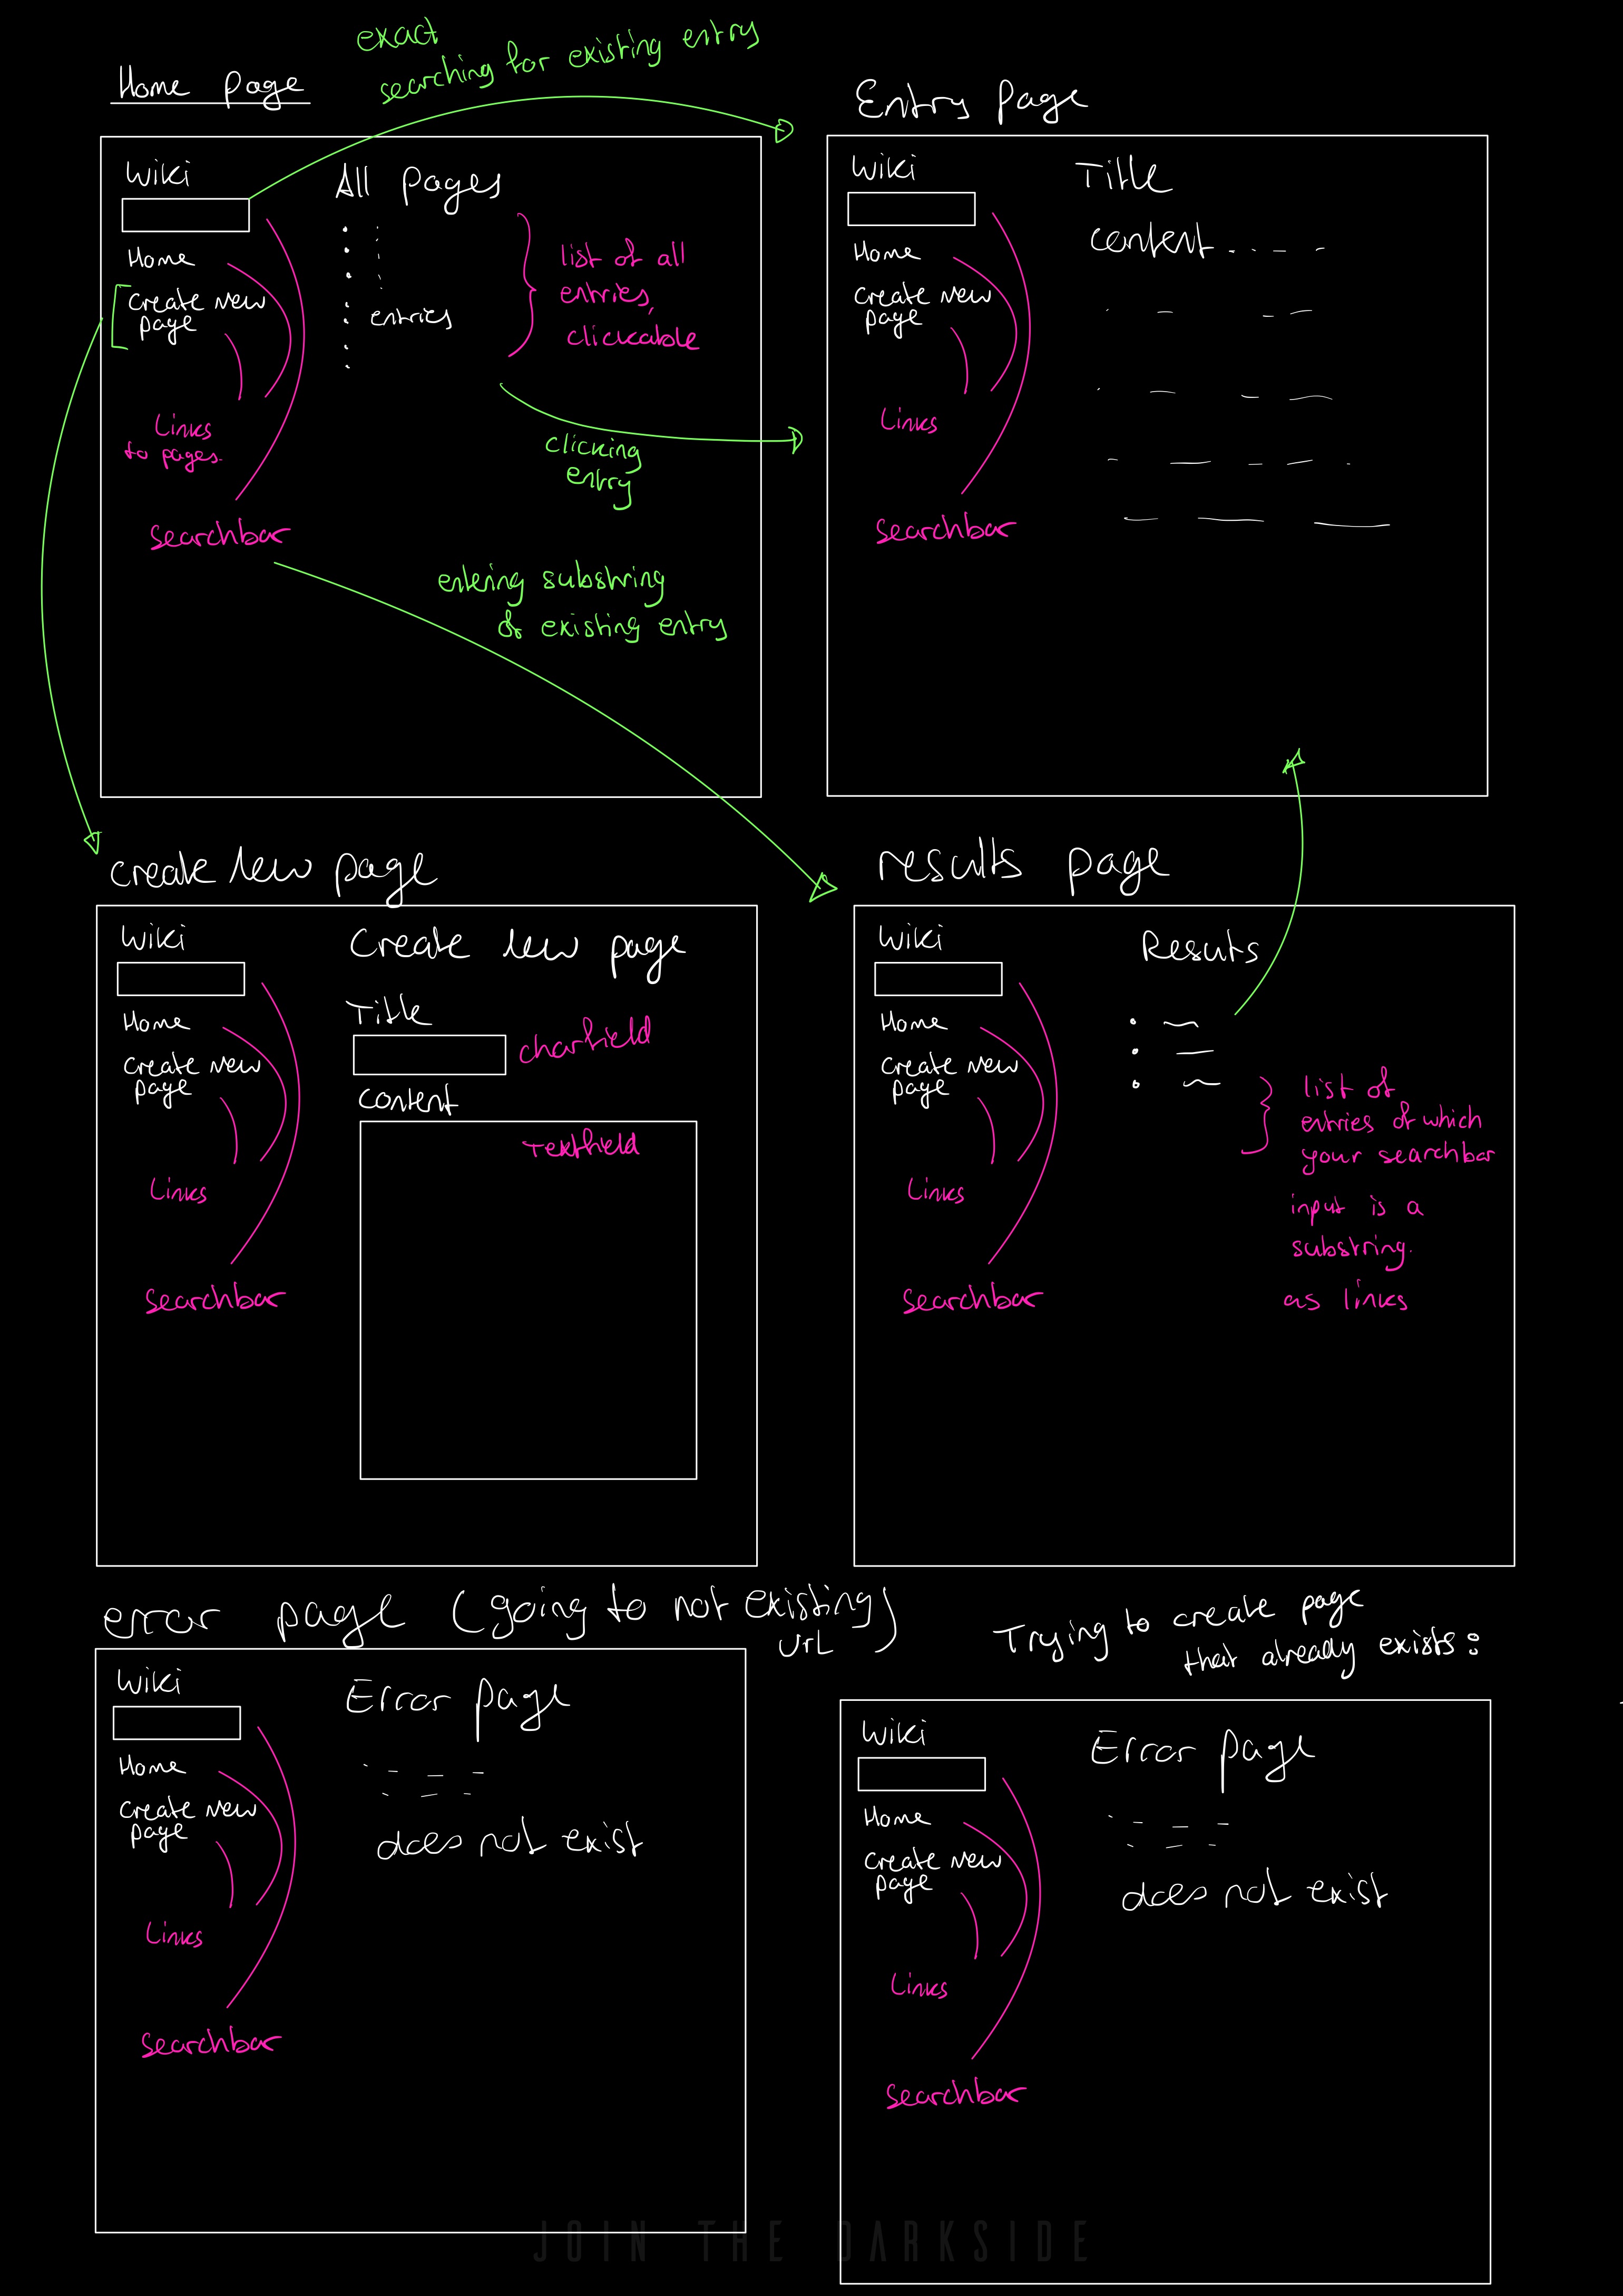 exact
searching for existing entry
Home page
Wiki
Home
Create New
page
Links
to pages.
Searchbar
All pages
entries
list of all
entries,
clickable
clicking
entry
entering substring
of existing entry
Entry page
Wiki
Home
Create New
page
Links
Searchbar
Title
content
create new page
Wiki
Home
Create New
page
Links
Searchbar
Create new page
Title
charfield
content
Textfield
results page
Wiki
Home
Create New
page
Links
Searchbar
Results
list of
entries of which
your searchbar
input is a
substring.
as links
error page (going to not existing)
URL
Wiki
Home
Create New
page
Links
Searchbar
Error page
does not exist
Trying to create page
that already exists:
Wiki
Home
Create New
page
Links
Searchbar
Error page
does not exist
JOIN THE DARKSIDE